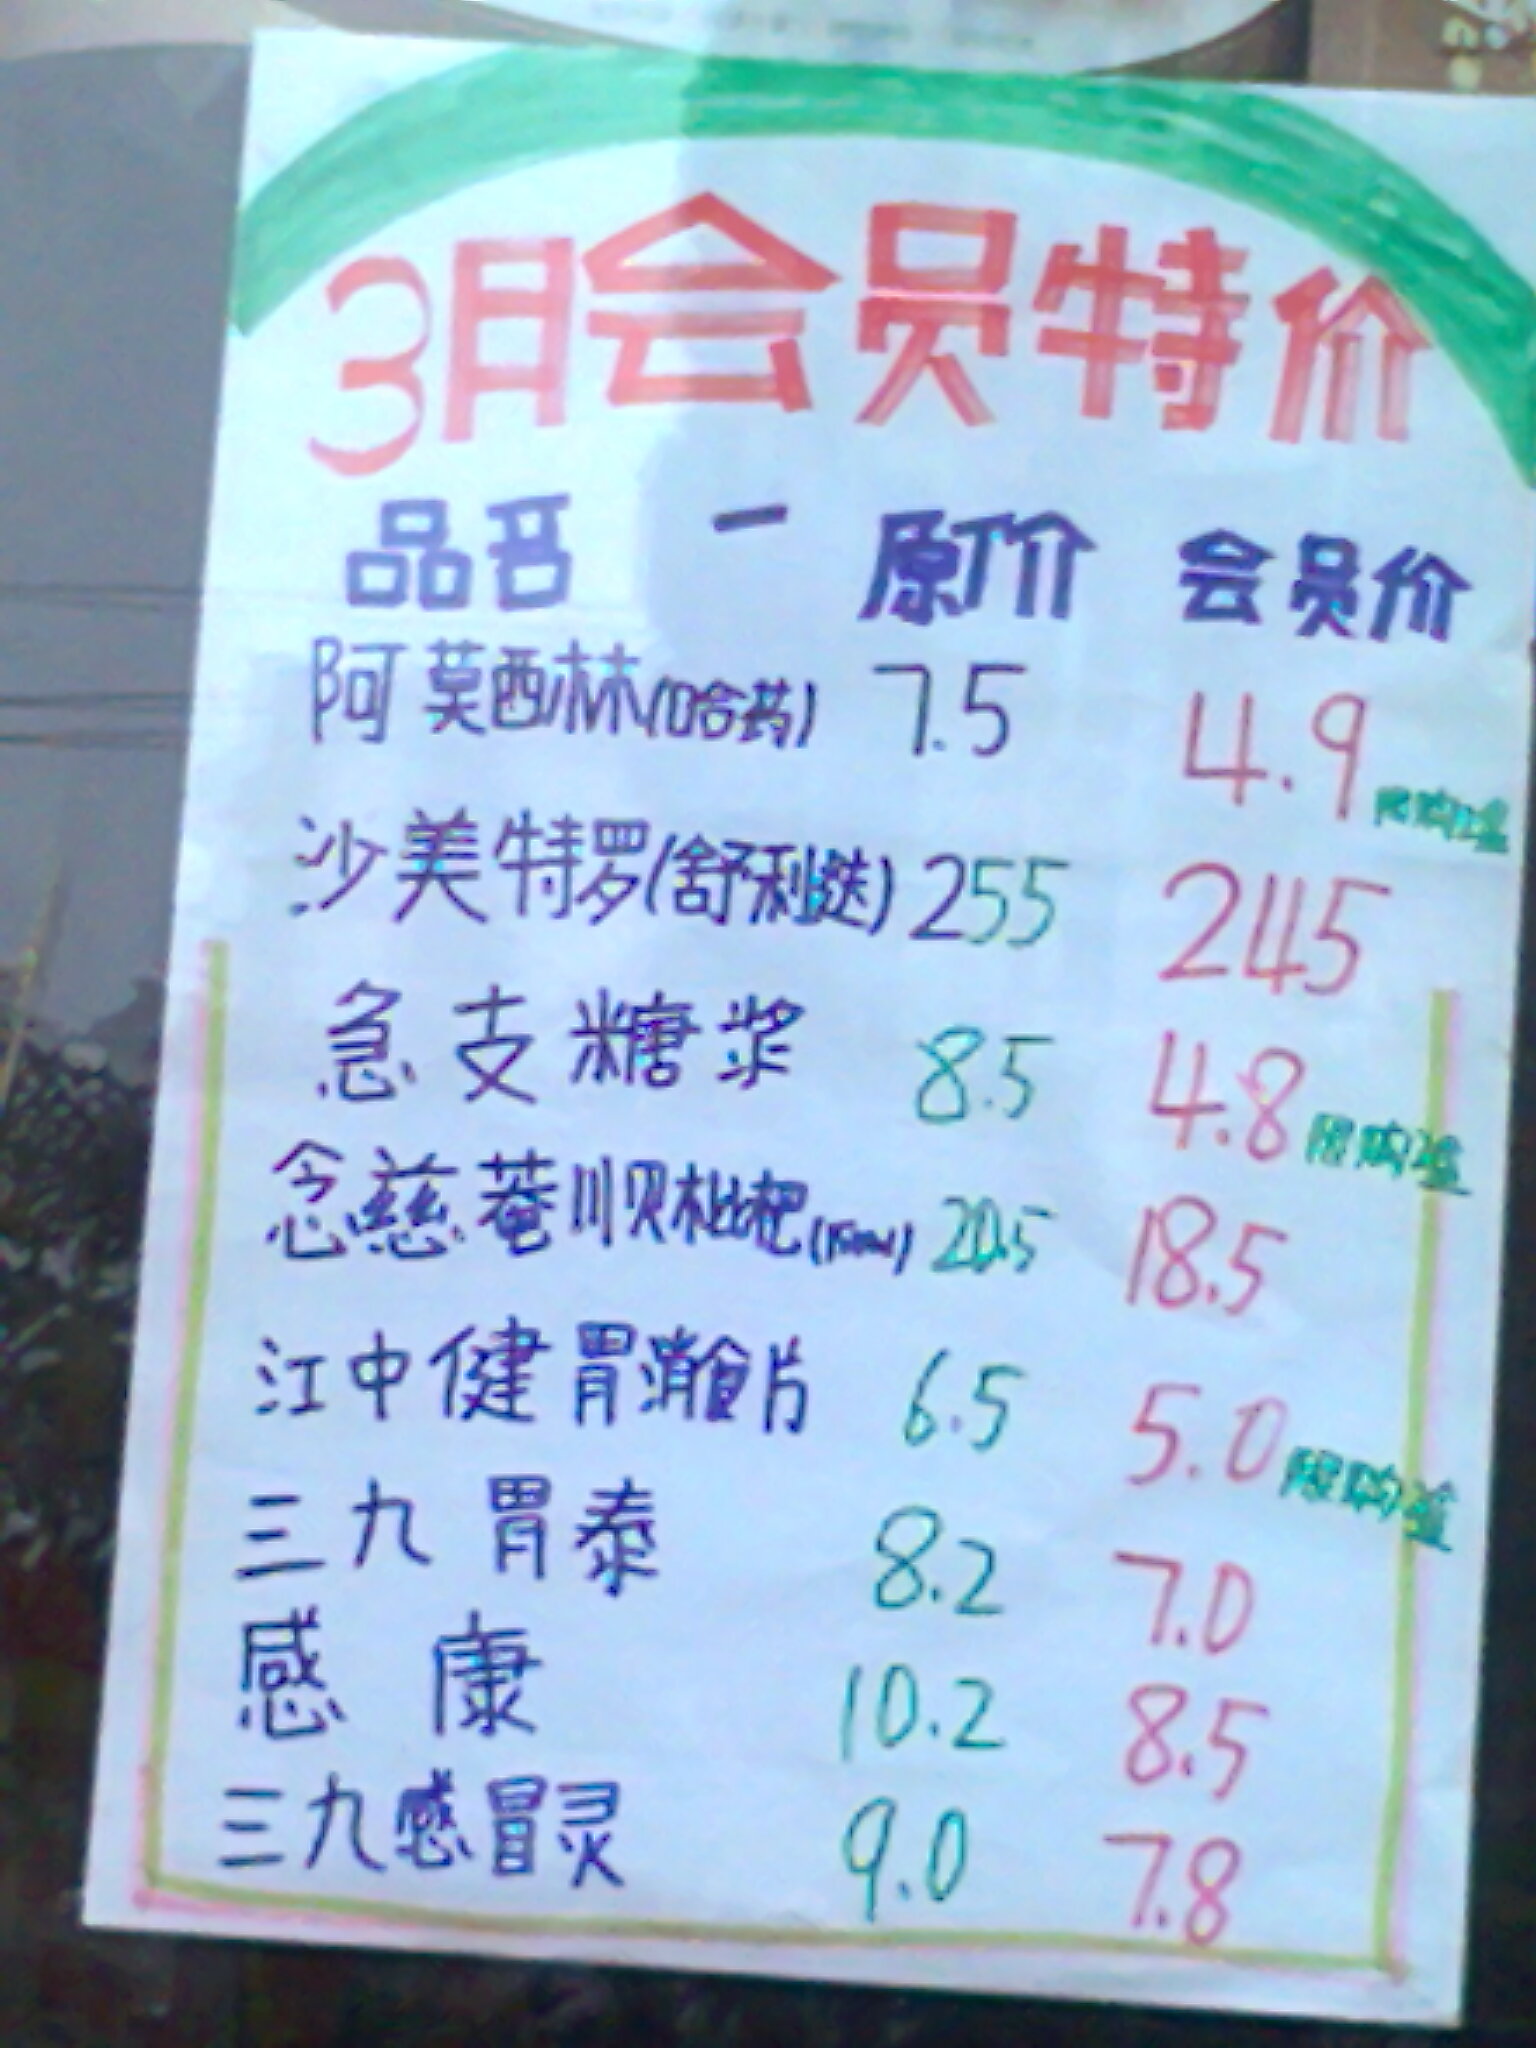 3月会员特价
品名 一 原价 会员价
阿莫西林(哈药) 7.5 4.9
沙美特罗(舒利迭) 255 245
急支糖浆 8.5 4.8 限购壹
念慈菴川贝枇杷 20.5 18.5
江中健胃消食片 6.5 5.0 限购壹
三九胃泰 8.2 7.0
感康 10.2 8.5
三九感冒灵 9.0 7.8